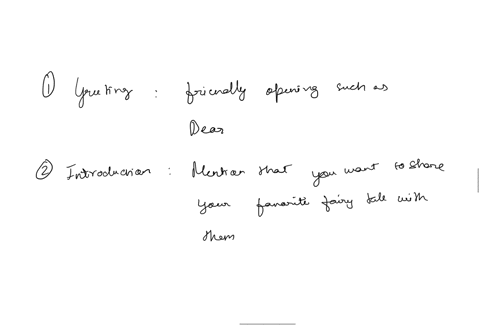 ① Greeting : friendly opening such as
Dear
② Introduction : Mention that you want to share
your favorite fairy tale with
them